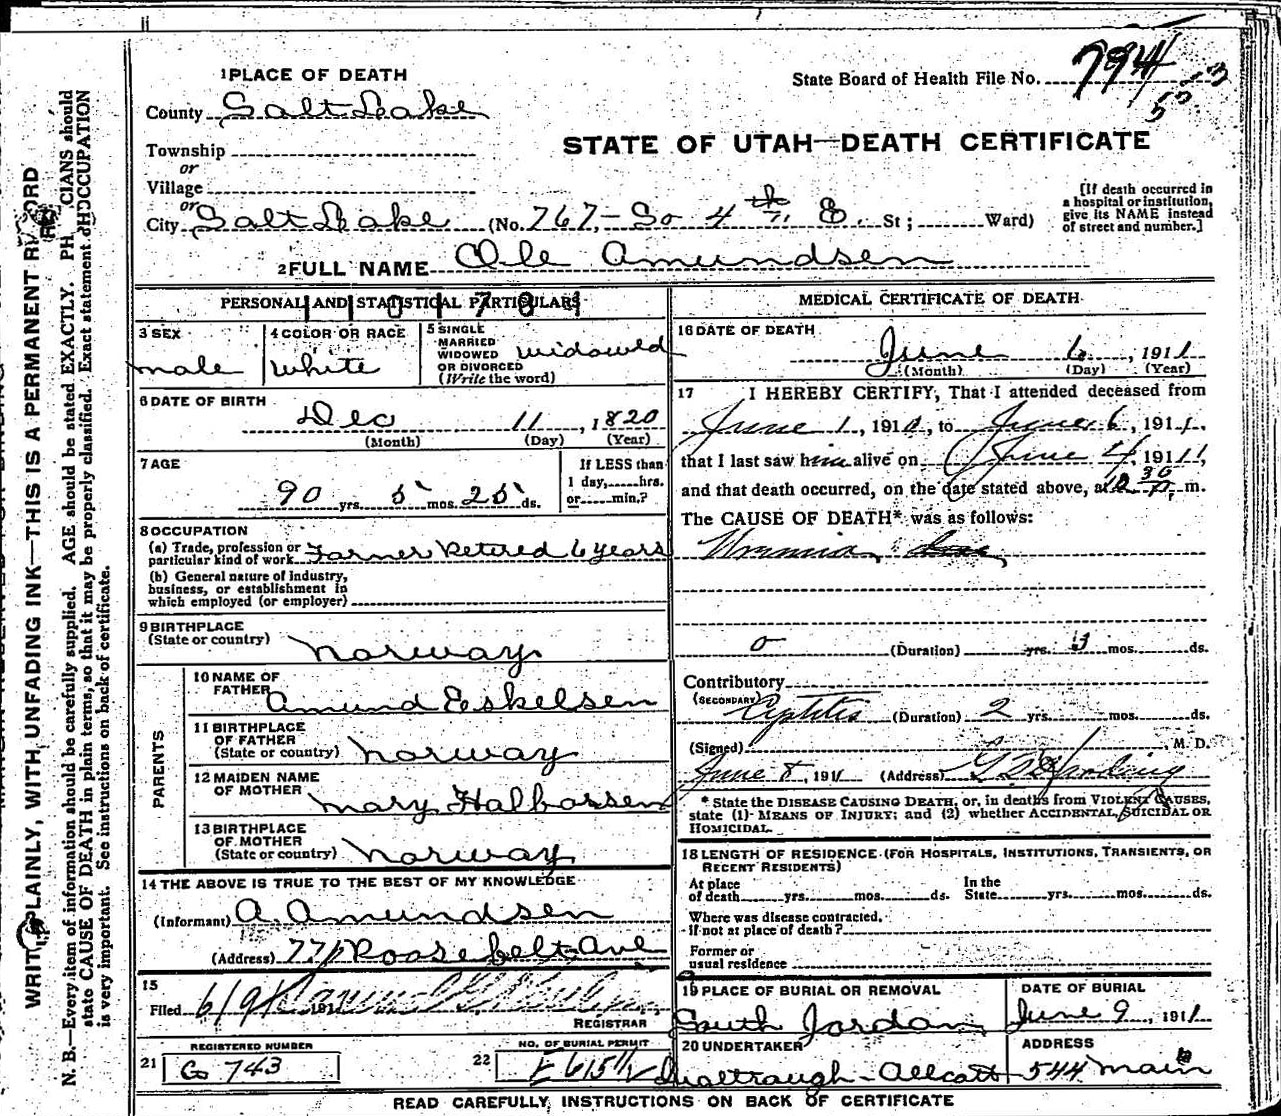 1 PLACE OF DEATH
State Board of Health File No. 794
County Salt Lake
STATE OF UTAH—DEATH CERTIFICATE
Township
or
Village
or
City Salt Lake (No. 767, So 4th E. St; Ward)
[If death occurred in a hospital or institution, give its NAME instead of street and number.]
2 FULL NAME Ole Amundsen
PERSONAL AND STATISTICAL PARTICULARS
1101701
3 SEX
male
4 COLOR OR RACE
White
5 SINGLE MARRIED WIDOWED OR DIVORCED (Write the word) widowed
6 DATE OF BIRTH
Dec 11, 1820
(Month) (Day) (Year)
7 AGE
90 yrs. 5 mos. 25 ds.
If LESS than 1 day, hrs. or min.?
8 OCCUPATION
(a) Trade, profession or particular kind of work Farmer Retired 6 years
(b) General nature of industry, business, or establishment in which employed (or employer)
9 BIRTHPLACE
(State or country) Norway
PARENTS
10 NAME OF FATHER Amund Eskelsen
11 BIRTHPLACE OF FATHER (State or country) Norway
12 MAIDEN NAME OF MOTHER Mary Halbossen
13 BIRTHPLACE OF MOTHER (State or country) Norway
14 THE ABOVE IS TRUE TO THE BEST OF MY KNOWLEDGE
(Informant) A. Amundsen
(Address) Roosebelt Ave
15
Filed 6/9 191
REGISTRAR
REGISTERED NUMBER
21 Co 743
NO. OF BURIAL PERMIT
22 E 6151
MEDICAL CERTIFICATE OF DEATH
16 DATE OF DEATH
June 6, 1911
(Month) (Day) (Year)
17 I HEREBY CERTIFY, That I attended deceased from
June 1, 1910, to June 6, 1911,
that I last saw him alive on June 4, 1911,
and that death occurred, on the date stated above, at m.
The CAUSE OF DEATH* was as follows:
0 (Duration) yrs. 3 mos. ds.
Contributory
(SECONDARY) (Duration) 2 yrs. mos. ds.
(Signed) M. D.
June 8, 1911 (Address)
* State the DISEASE CAUSING DEATH, or, in deaths from VIOLENT CAUSES, state (1) MEANS OF INJURY; and (2) whether ACCIDENTAL, SUICIDAL OR HOMICIDAL.
18 LENGTH OF RESIDENCE (FOR HOSPITALS, INSTITUTIONS, TRANSIENTS, OR RECENT RESIDENTS)
At place of death yrs. mos. ds. In the State yrs. mos. ds.
Where was disease contracted, if not at place of death?
Former or usual residence
19 PLACE OF BURIAL OR REMOVAL
South Jordan
DATE OF BURIAL
June 9, 1911
20 UNDERTAKER
ADDRESS
544 Main
READ CAREFULLY INSTRUCTIONS ON BACK OF CERTIFICATE
WRITE PLAINLY, WITH UNFADING INK—THIS IS A PERMANENT RECORD
N. B.—Every item of information should be carefully supplied. AGE should be stated EXACTLY. PHYSICIANS should
state CAUSE OF DEATH in plain terms, so that it may be properly classified. Exact statement of OCCUPATION
is very important. See instructions on back of certificate.